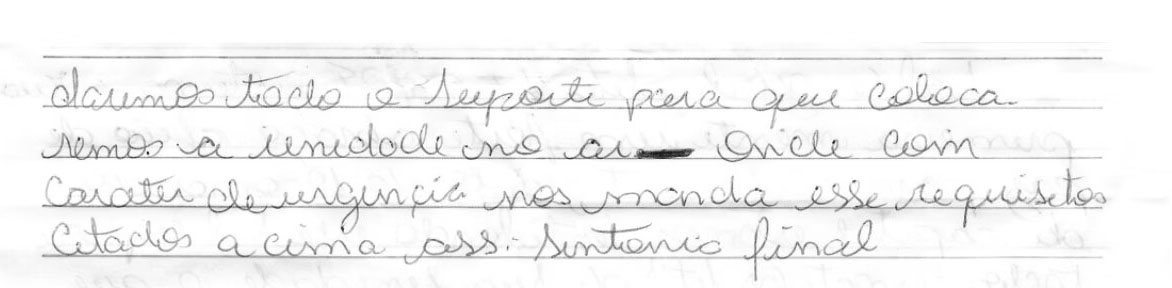 daremos todo o suporte para que coloca-
remos a unidade no ar onde com
carater de urgençia nos manda esse requisitos
citados a cima ass:- Sintonia final